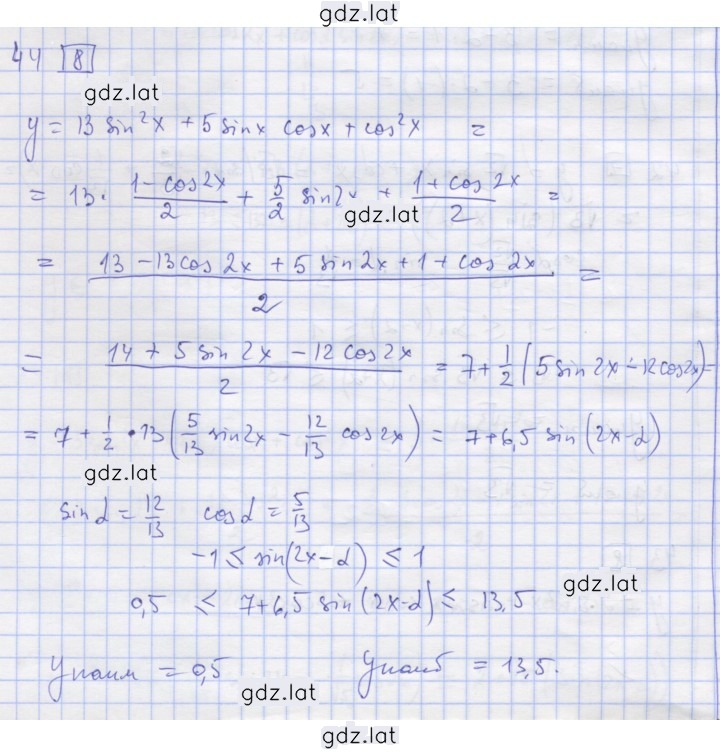 gdz.lat
44 8
gdz.lat
y = 13 sin²x + 5 sinx cosx + cos²x =
= 13 · (1 - cos2x)/2 + 5/2 sin2x + (1 + cos 2x)/2 =
gdz.lat
= (13 - 13cos 2x + 5 sin2x + 1 + cos 2x)/2 =
= (14 + 5 sin 2x - 12 cos2x)/2 = 7 + 1/2 (5 sin 2x - 12 cos2x) =
= 7 + 1/2 · 13 (5/13 sin2x - 12/13 cos 2x) = 7 + 6,5 sin (2x - d)
gdz.lat
sin d = 12/13 cos d = 5/13
-1 ≤ sin(2x - d) ≤ 1
gdz.lat
0,5 ≤ 7 + 6,5 sin (2x - d) ≤ 13,5
y наим = 0,5 y наиб = 13,5.
gdz.lat
gdz.lat